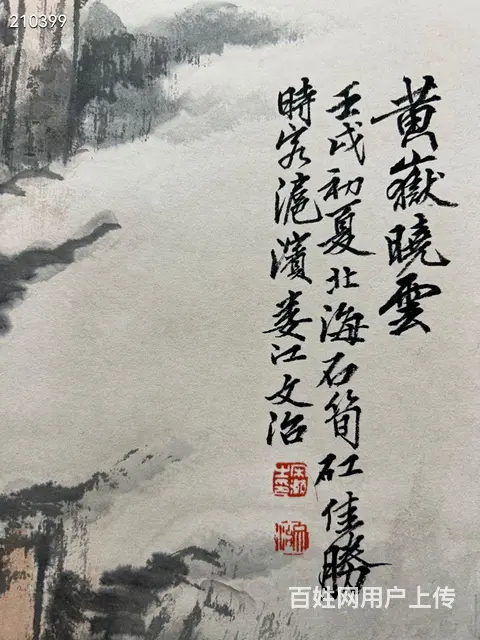 210399
黄嶽曉雲
壬戌初夏北海石筍矼佳勝
時客滬濱婁江文治
百姓网用户上传